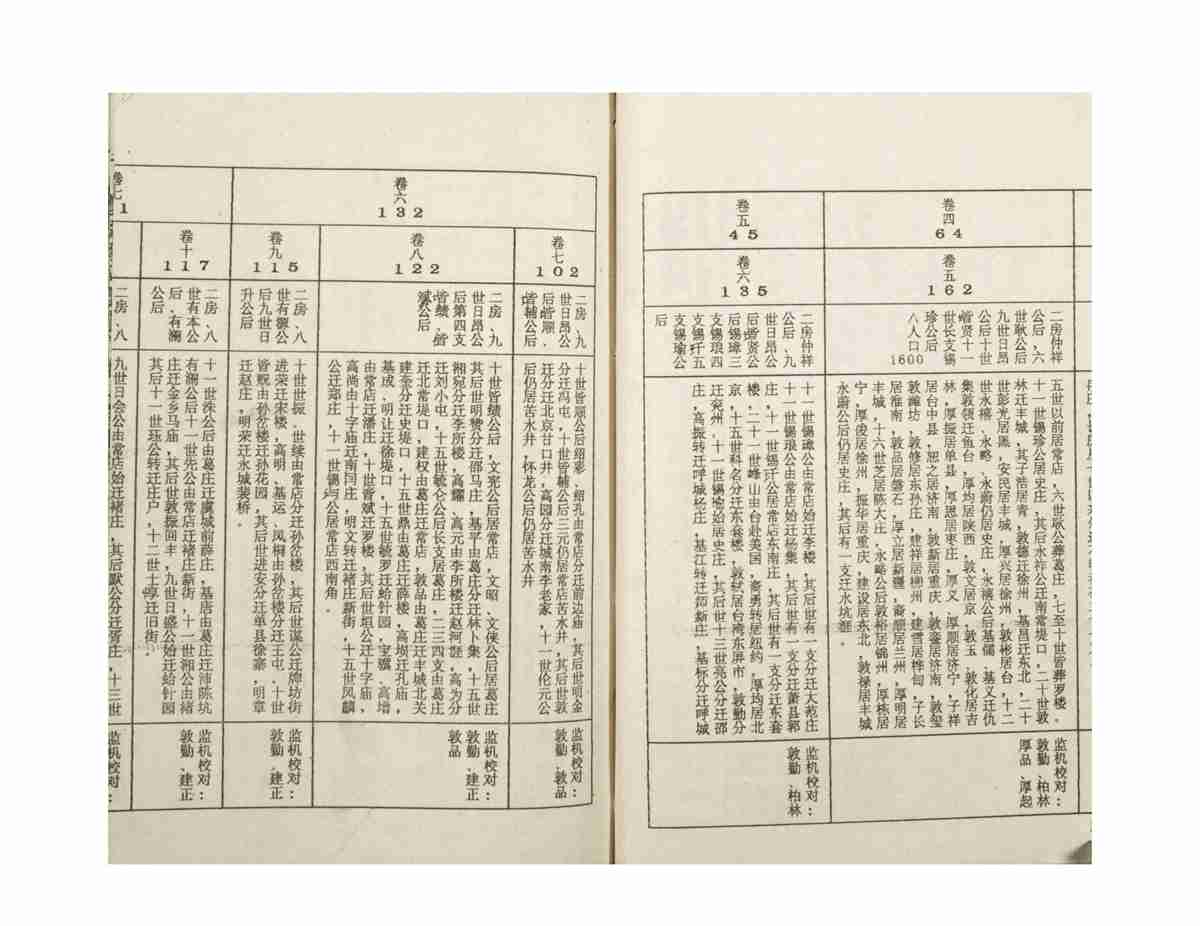 卷四
64
卷五
162
二房仲祥
公后，六
世耿公后
九世日昂
公后十世
皆贤十一
世长支锡
珍公后
八人口
1600
五世以前居常店，六世耿公葬葛庄，七至十世皆葬罗楼。
十一世锡珍公居史庄，其后永祥公迁南常堤口，二十世敦
林迁丰城，其子浩居青，敦德迁徐州，基昌迁东北，二十
世彭光居黑，安民居丰城，厚兴居徐州，敦彬居台，十二
世永禧、永略、永蔚仍居史庄，永禧公后基儒、基义迁仇
集敦领迁鱼台，厚均居陕西，敦文居京，敦玉、敦化居吉
林，厚振居单县，厚恩居枣庄，厚义、厚顺居济宁，子祥
居台中县，恕之居济南，敦新居重庆，敦銮居济南，敦玺
敦潍坊，敦修居东孙庄，建祥居柳州，建雪居桦甸，子长
居淮南，敦品居磐石，厚立居新疆，裔顺居兰州，厚明居
丰城，十六世芝居陈大庄，永略公后敦裕居锦州，厚栋居
宁，厚俊居徐州，振华居重庆，建设居东北，敦禄居丰城
永蔚公后仍居史庄，其后有一支迁水坑涯。
监机校对：
敦勤、柏林
厚品、厚起
卷五
45
卷六
135
二房仲祥
公后、九
世日昂公
后皆贤公
后锡璋三
支锡琅四
支锡玕五
支锡瑜公
后
十一世锡璋公由常店始迁李楼，其后世有一支分迁大范庄
十一世锡琅公由常店始迁杨集，其后世有一支分迁萧县郭
庄，十一世锡玕公居常店东南庄，其后世有一支分迁东套
楼，二十一世峰山由台赴美国，裔勇转居纽约，厚均居北
京，十五世科名分迁东套楼，敦轼居台湾东屏市，敦勤分
迁兖州。十一世锡瑜始居史庄，其后世十三世亮公分迁邵
庄，高振转迁呼城杨庄，基江转迁师新庄，基标分迁呼城
监机校对：
敦勤、柏林
卷六
132
卷七
102
二房、九
世日昂公
后皆顺、
皆辅公后
十世皆顺公后绍彩、绍孔由常店分迁前边庙，其后世明金
分迁冯屯，十世皆辅公后三元仍居常店苦水井，其后世敦
迁分迁北京甘口井，高园分迁城南李老家，十一世伦元公
后仍居苦水井，怀龙公后仍居苦水井
监机校对：
敦勤、敦品
卷八
122
二房、九
世日昂公
后第四支
皆绩、皆
斌公后
十世皆绩公后，文宪公后居常店，文昭、文侠公后居葛庄
其后世明赞分迁邵马庄，基平由葛庄分迁林卜集，十五世
湘宛分迁李所楼，高耀、高元由李所楼迁赵河涯，高为分
迁刘小屯，十五世毓仑公后长支居葛庄，二三四支由葛庄
迁北常堤口，建权由葛庄迁常店，敦品由葛庄迁丰城北关
建奎分迁史堤口，十五世鼎由葛庄迁薛楼，高埙迁孔庙，
基成、明让迁徐堤口，十五世毓罗迁蛤针园，宝骥、高增
由常店迁潘庄，十世皆斌迁罗楼，其后世垣公迁十字庙，
高尚由十字庙迁南闫庄，明文转迁褚庄新街，十五世凤麟
公迁郑庄，十一世锡与公居常店西南角。
监机校对：
敦勤、建正
敦品
卷九
115
二房、八
世有源公
后九世日
升公后
十世世振、世续由常店分迁孙岔楼，其后世谋公迁牌坊街
进荣迁宋楼，高明、基运、凤桐由孙岔楼分迁王屯、十世
皆贶由孙岔楼迁孙花园，其后世进安分迁单县徐寨，明章
迁赵庄，明荣迁永城裴桥。
监机校对：
敦勤、建正
卷七
1
卷十
117
二房、八
世有本公
后、有澜
公后
十一世洙公后由葛庄迁虞城前薛庄，基唐由葛庄迁沛陈坑
有澜公后十一世先公由常店迁褚庄新街，十一世湘公由褚
庄迁金乡马庙，其后世敦振回丰，九世日盛公始迁蛤针园
其后十一世珏公转迁庄户，十二世士惇迁旧街。
监机校对：
敦勤、建正
二房、八
九世日会公由常店始迁褚庄，其后默公分迁胥庄，十三世
监机校对：